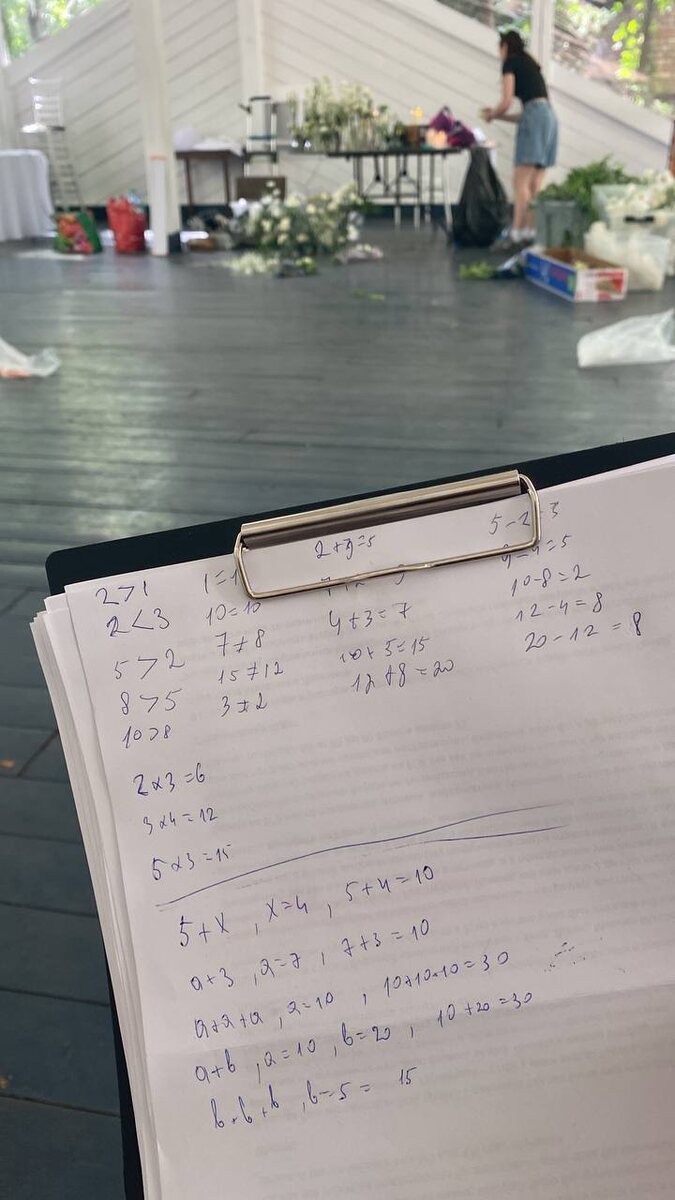 2>1
2<3
5>2
8>5
10>8
10=10
7≠8
15≠12
3≠2
2+3=5
4+3=7
10+5=15
12+8=20
10-8=2
12-4=8
20-12=8
2×3=6
3×4=12
5×3=15
5+x, x=4, 5+4=10
a+3, a=7, 7+3=10
a+a+a, a=10, 10+10+10=30
a+b, a=10, b=20, 10+20=30
b+b+b, b=5= 15